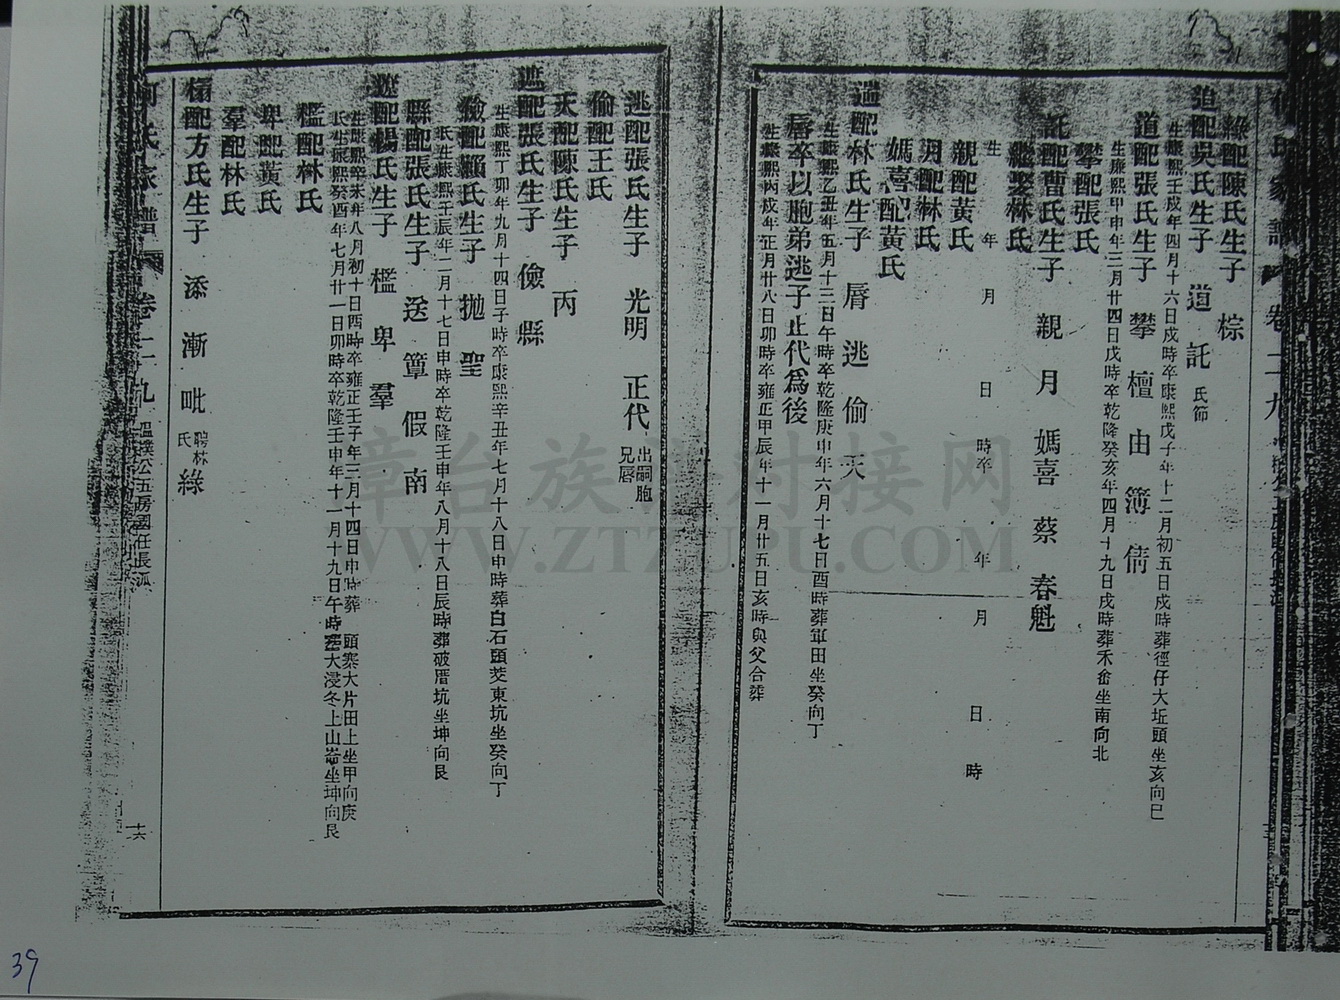 何氏家譜 卷二九
緣配陳氏生子 棕
追配吳氏生子 道 託 氏節
生康熙壬戌年四月十六日戌時卒康熙戊子年十二月初五日戌時葬徑仔大坵頭坐亥向巳
道配張氏生子 攀 檀 由 簿 倩
生康熙甲申年三月廿四日戊時卒乾隆癸亥年四月十九日戌時葬禾畬坐南向北
攀配張氏
託配曹氏生子 親 月 媽喜 蔡 春魁
繼娶林氏
生 年 月 日 時卒 年 月 日 時
親配黃氏
月配林氏
媽喜配黃氏
配林氏生子 脣 逃 偷 天
生康熙乙丑年五月十二日午時卒乾隆庚申年六月十七日酉時葬軍田坐癸向丁
脣卒以胞弟逃子正代爲後
生康熙丙戌年正月廿八日卯時卒雍正甲辰年十一月廿五日亥時與父合葬
逃配張氏生子 光明 正代 出嗣胞兄脣
偷配王氏
天配陳氏生子 丙
遮配張氏生子 儉 縣
生康熙丁卯年九月十四日子時卒康熙辛丑年七月十八日申時葬白石頭茭東坑坐癸向丁
儉配賴氏生子 拋 聖
氏生康熙壬辰年二月十七日申時卒乾隆壬申年八月十八日辰時葬破厝坑坐坤向艮
縣配張氏生子 送 簟 假 南
配楊氏生子 檻 卑 羣
生康熙辛未年八月初十日酉時卒雍正壬子年三月十四日申時葬 頭寨大片田上坐甲向庚
氏生康熙癸酉年七月廿一日卯時卒乾隆壬申年十一月十九日午時葬大浸冬上山崙坐坤向艮
檻配林氏
卑配黃氏
羣配林氏
配方氏生子 添 漸 毗 聘林氏 綠
何氏家譜 卷二九 溫璞公五房國任長派
十六
章台族譜对接网
WWW.ZTZUPU.COM
39